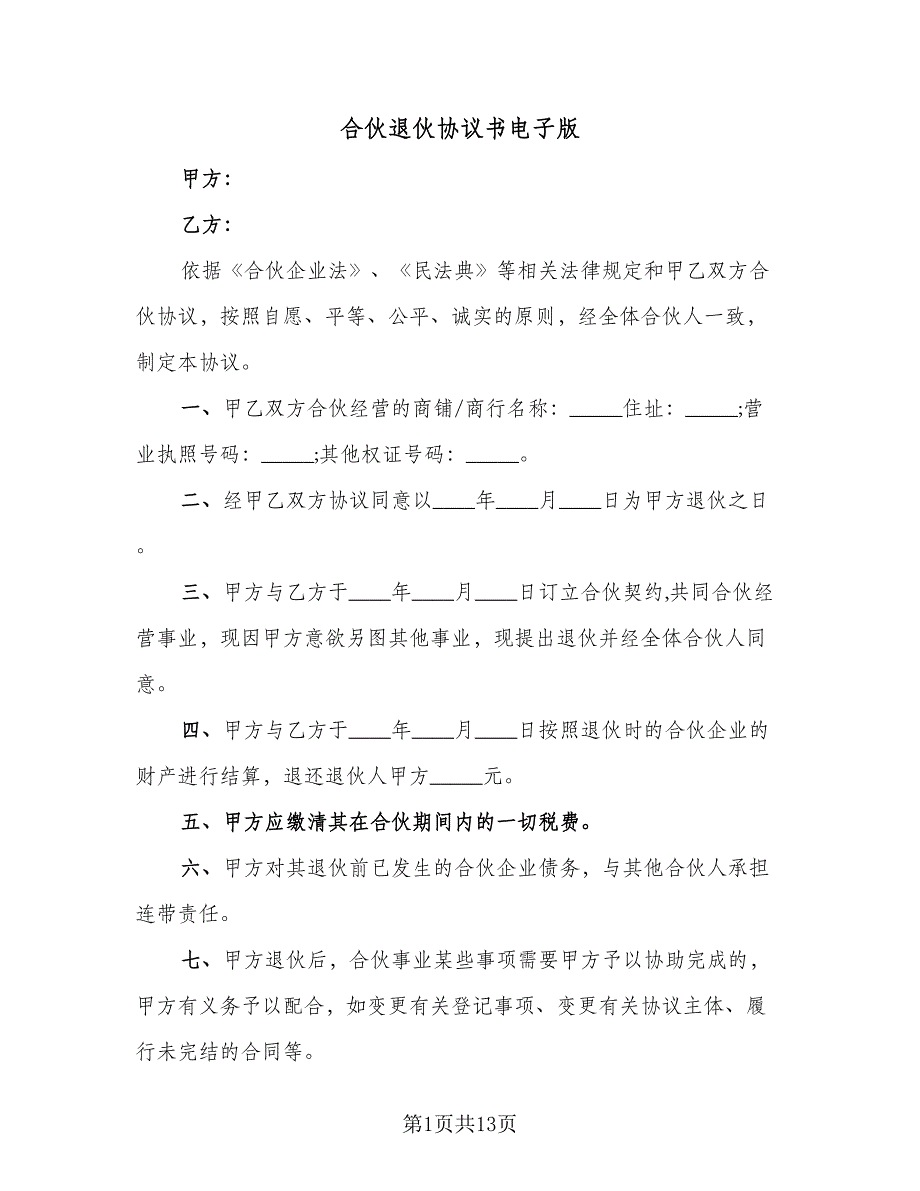 合伙退伙协议书电子版
甲方：
乙方：
依据《合伙企业法》、《民法典》等相关法律规定和甲乙双方合
伙协议，按照自愿、平等、公平、诚实的原则，经全体合伙人一致，
制定本协议。
一、甲乙双方合伙经营的商铺/商行名称：_____住址：_____;营
业执照号码：_____;其他权证号码：_____。
二、经甲乙双方协议同意以____年____月____日为甲方退伙之日
。
三、甲方与乙方于____年____月____日订立合伙契约,共同合伙经
营事业，现因甲方意欲另图其他事业，现提出退伙并经全体合伙人同
意。
四、甲方与乙方于____年____月____日按照退伙时的合伙企业的
财产进行结算，退还退伙人甲方_____元。
五、甲方应缴清其在合伙期间内的一切税费。
六、甲方对其退伙前已发生的合伙企业债务，与其他合伙人承担
连带责任。
七、甲方退伙后，合伙事业某些事项需要甲方予以协助完成的，
甲方有义务予以配合，如变更有关登记事项、变更有关协议主体、履
行未完结的合同等。
第1页共13页